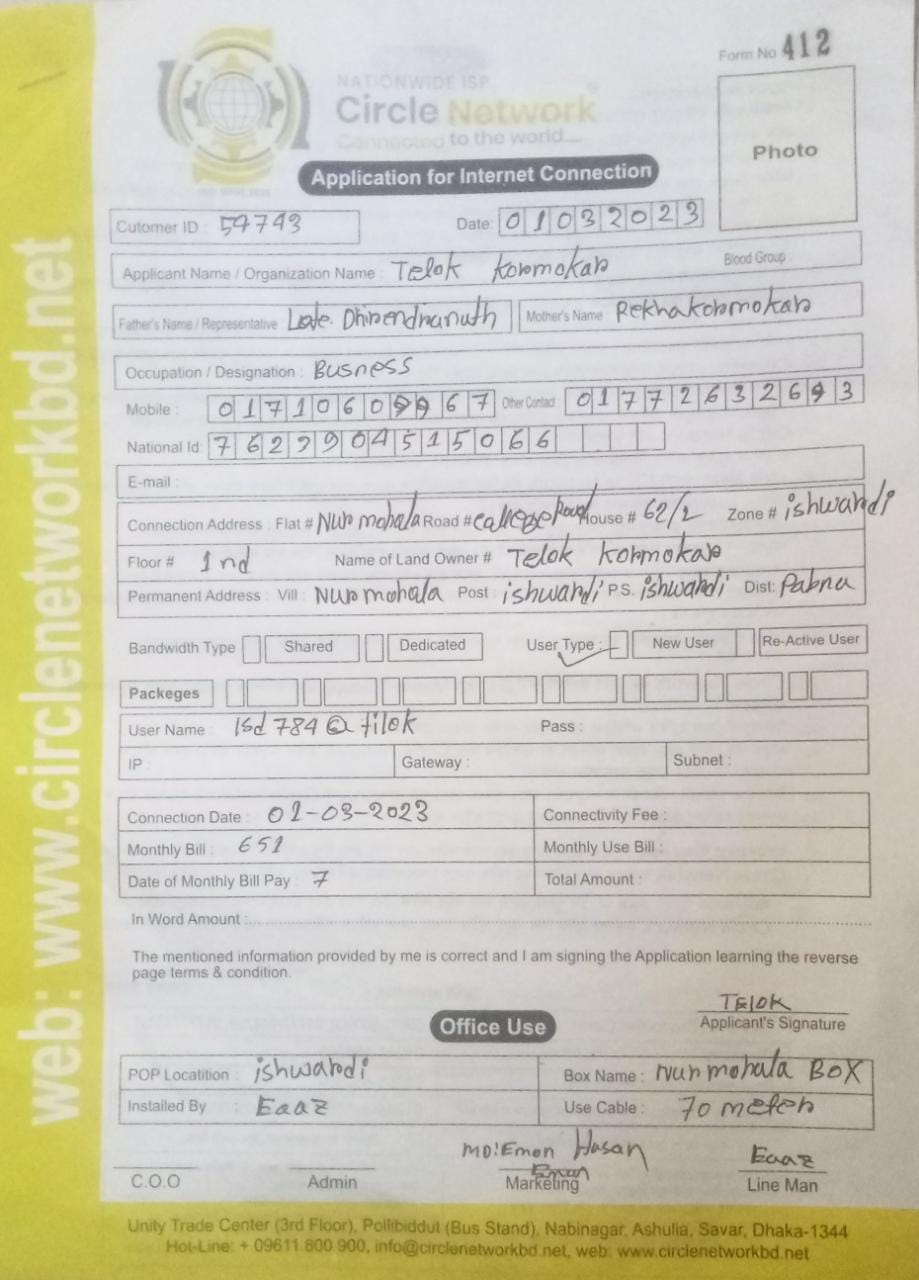 Form No 412
NATIONWIDE ISP
Circle Network
Connected to the world....
Photo
Application for Internet Connection
Cutomer ID : 54743 Date: 01032023
Applicant Name / Organization Name : Telok Kormokar Blood Group :
Father's Name / Representative Late. Dhirendranath Mother's Name : Rekha Kormokar
Occupation / Designation : Busness
Mobile : 0171060 67 Other Contact 01772632693
National Id 7629904515066
E-mail :
Connection Address : Flat # Nur mohala Road # College Road House # 62/2 Zone # ishwardi
Floor # 1nd Name of Land Owner # Telok Kormokar
Permanent Address : Vill : Nur mohala Post : ishwardi P.S. ishwardi Dist: Pabna
Bandwidth Type Shared Dedicated User Type : New User Re-Active User
Packeges
User Name : Isd784@tilok Pass :
IP : Gateway : Subnet :
Connection Date : 01-03-2023 Connectivity Fee :
Monthly Bill : 651 Monthly Use Bill :
Date of Monthly Bill Pay : 7 Total Amount :
In Word Amount :
The mentioned information provided by me is correct and I am signing the Application learning the reverse
page terms & condition.
TELOK
Applicant's Signature
Office Use
POP Locatition : ishwardi Box Name : Nur mohala BOX
Installed By : Eaaz Use Cable : 70 meter
MD: Emon Hasan Eaaz
Emon
C.O.O Admin Marketing Line Man
Unity Trade Center (3rd Floor), Pollibiddut (Bus Stand), Nabinagar, Ashulia, Savar, Dhaka-1344
Hot-Line: + 09611 800 900, info@circlenetworkbd.net, web: www.circlenetworkbd.net
web: www.circlenetworkbd.net